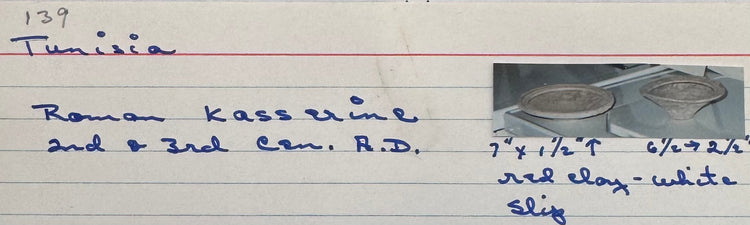 139
Tunisia
Roman Kasserine
2nd & 3rd Cen. A.D.
7" x 1 1/2" ↑ 6 1/2 → 2 1/2"
red clay - white
slip